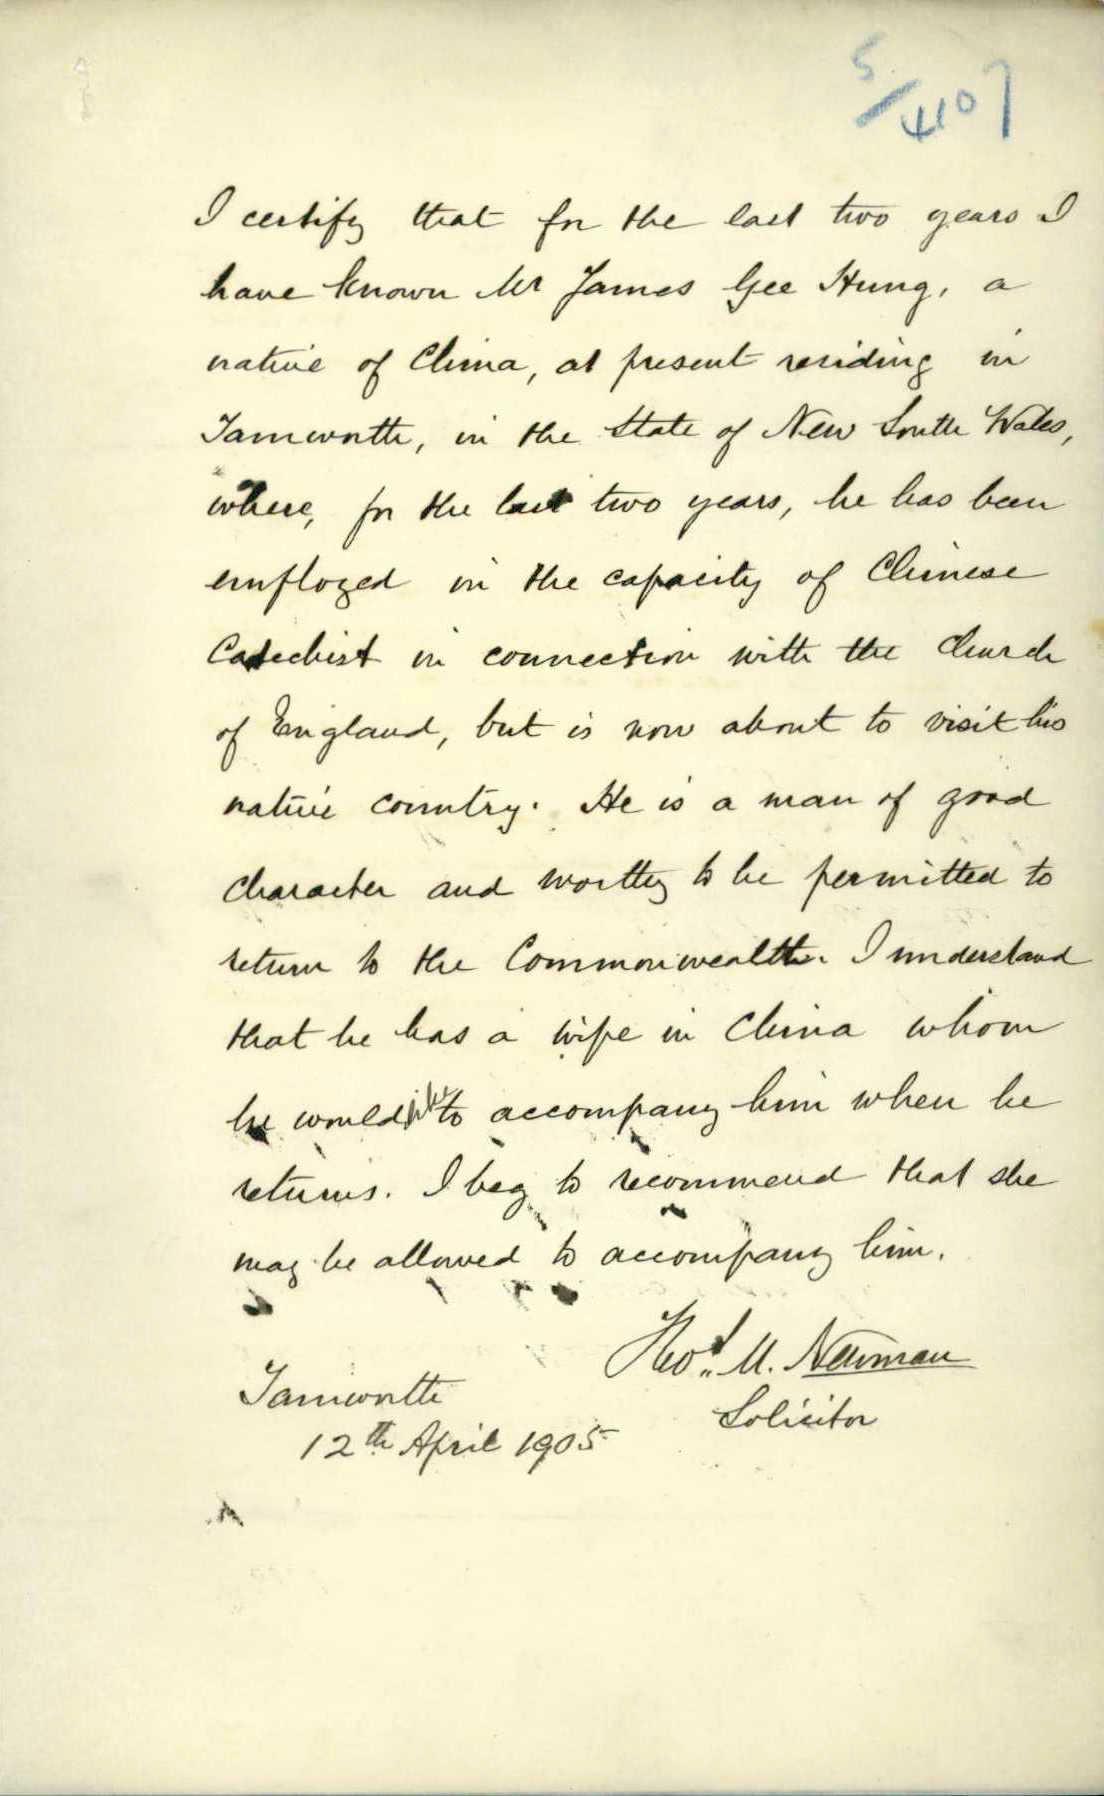 5/4107
I certify that for the last two years I
have known Mr James Gee Hung, a
native of China, at present residing in
Tamworth, in the State of New South Wales,
where, for the last two years, he has been
employed in the capacity of Chinese
Catechist in connection with the Church
of England, but is now about to visit his
native country. He is a man of good
character and worthy to be permitted to
return to the Commonwealth. I understand
that he has a wife in China whom
he would like to accompany him when he
returns. I beg to recommend that she
may be allowed to accompany him.
Thos. M. Newman
Solicitor
Tamworth
12th April 1905